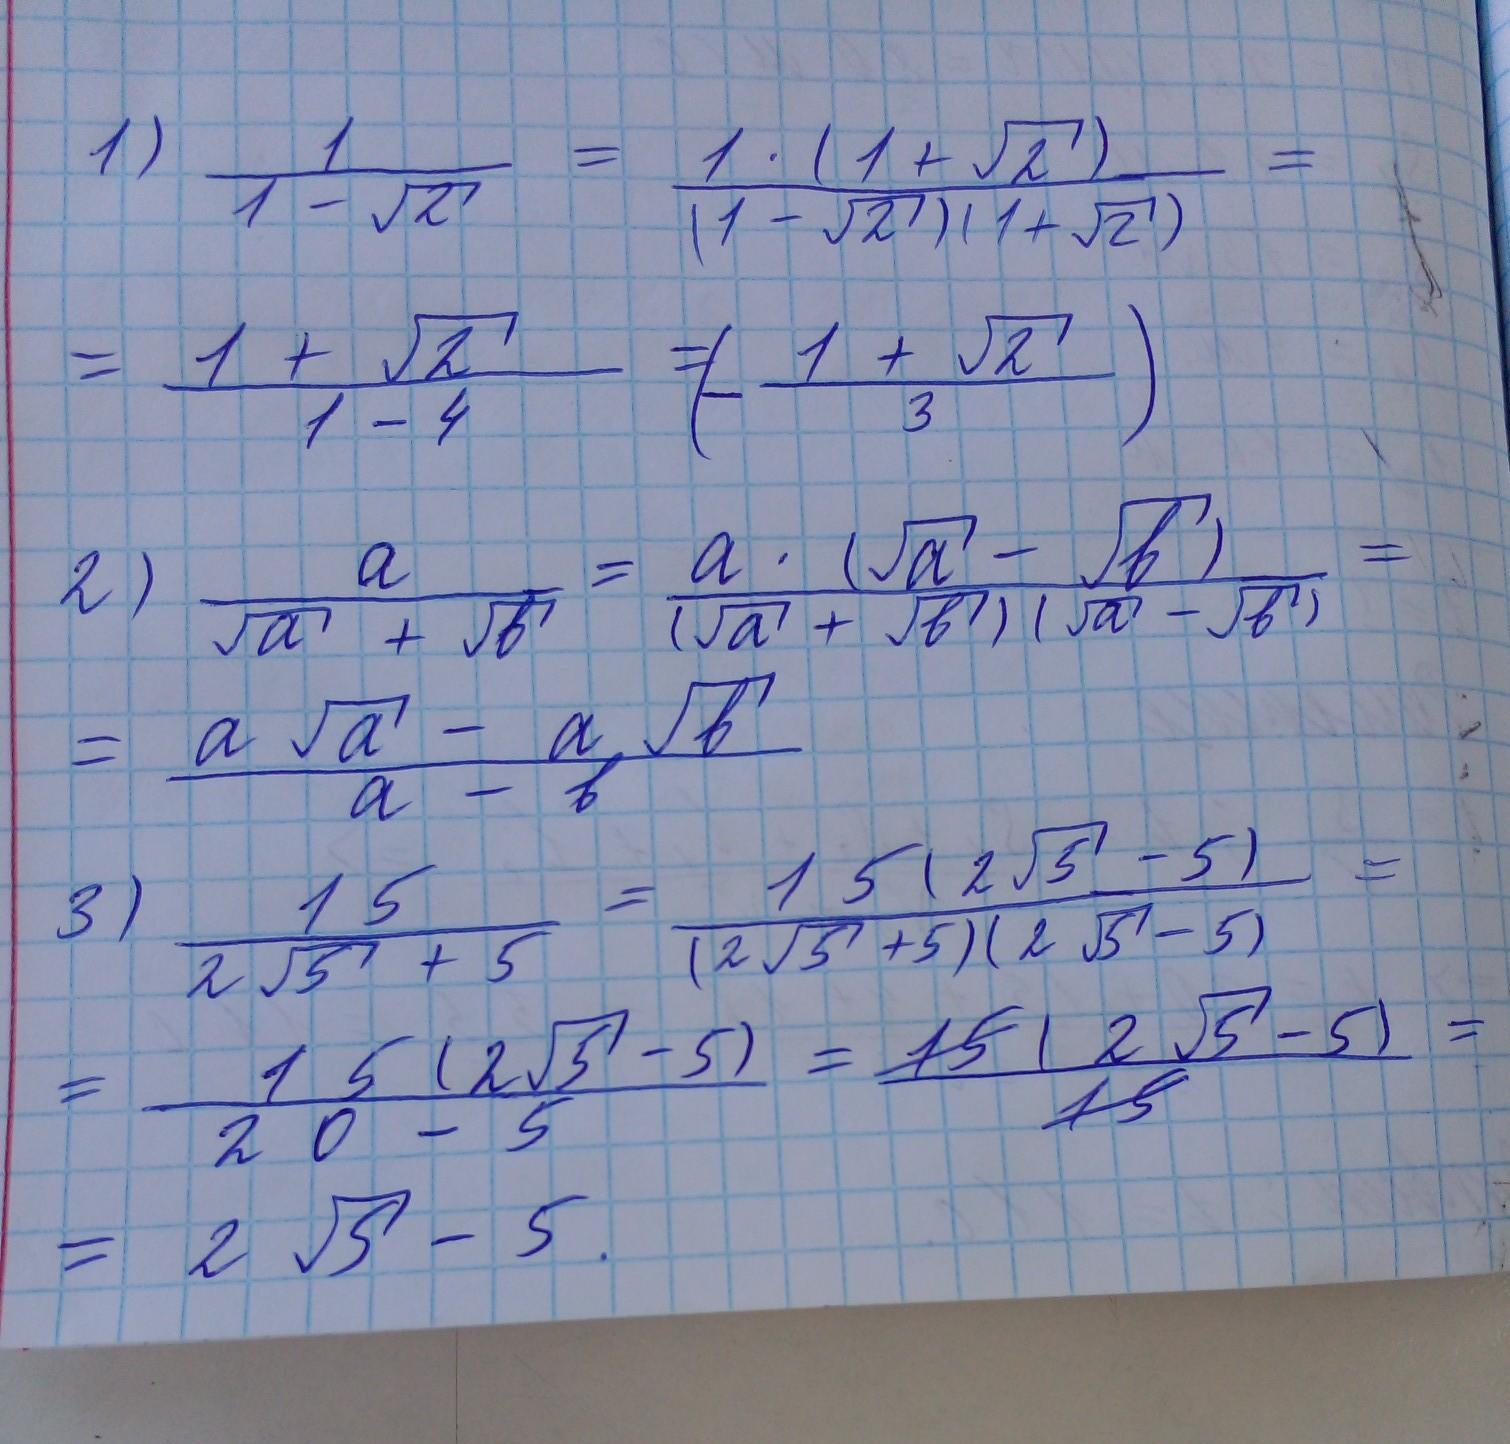 1) 1/(1 - √2) = 1 · (1 + √2)/((1 - √2)(1 + √2)) =
= (1 + √2)/(1 - 4) = (- (1 + √2)/3)
2) a/(√a + √b) = a · (√a - √b)/((√a + √b)(√a - √b)) =
= (a√a - a√b)/(a - b)
3) 15/(2√5 + 5) = 15(2√5 - 5)/((2√5 + 5)(2√5 - 5)) =
= 15(2√5 - 5)/(20 - 5) = 15(2√5 - 5)/15 =
= 2√5 - 5.